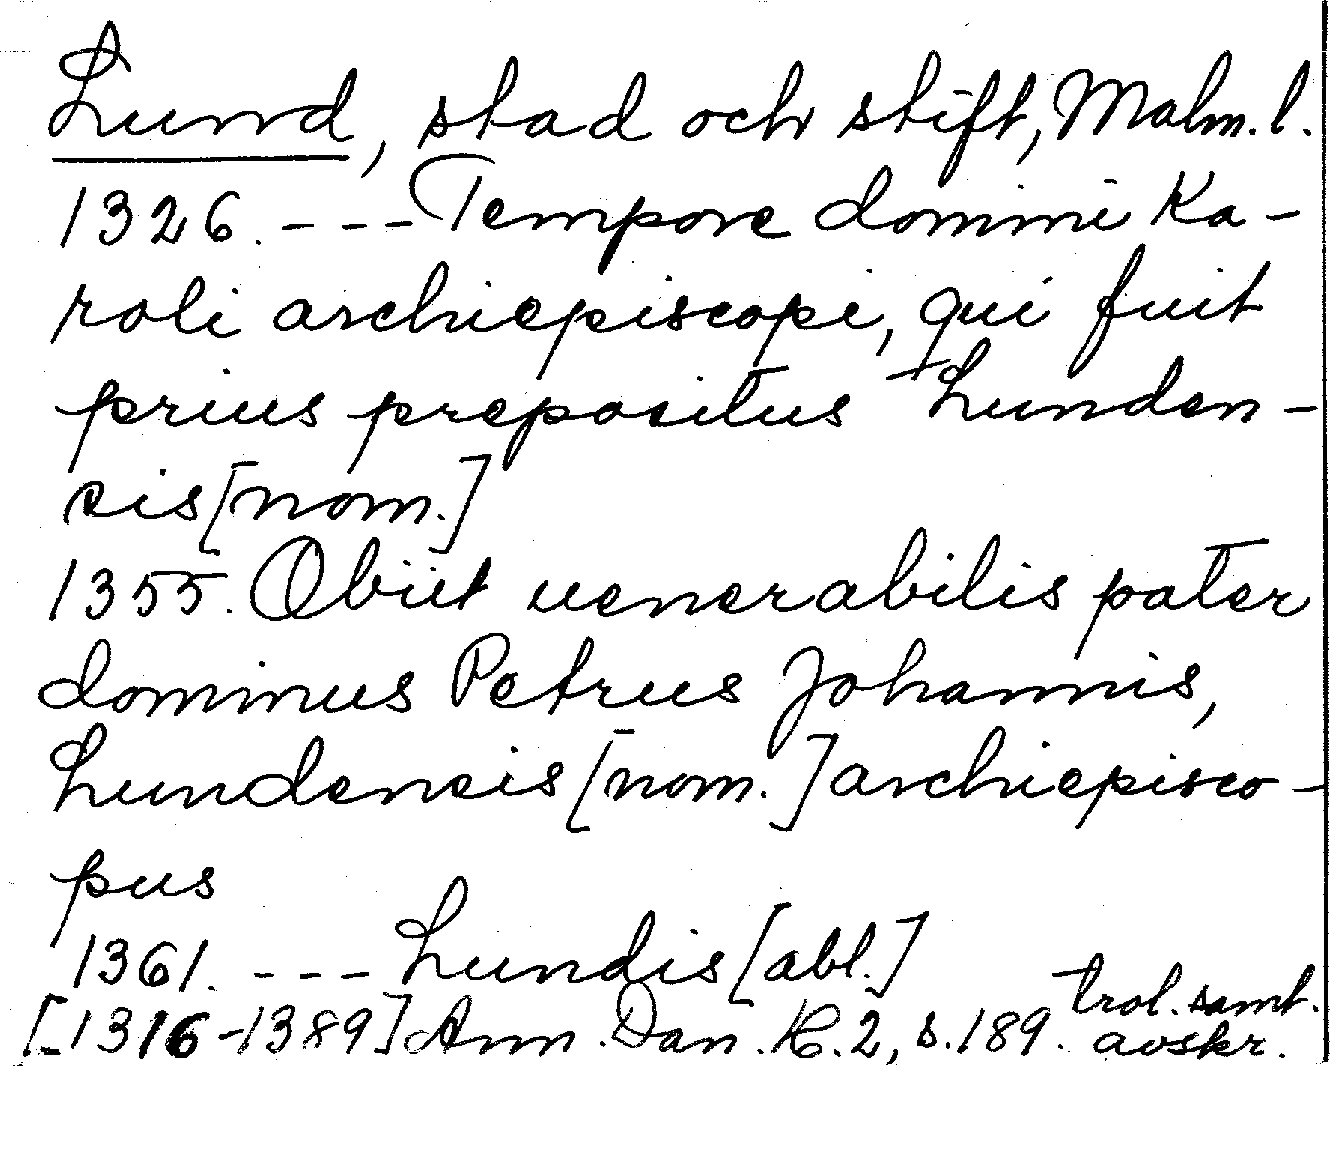 Lund, stad och stift, Malm. l.
1326. --- Tempore domini Ka-
roli archiepiscopi, qui fuit
prius prepositus Lunden-
cis [nom.]
1355. Obiit uenerabilis pater
dominus Petrus Johannis,
Lundencis [nom.] archiepisco-
pus
1361. --- Lundis [abl.]
[1316-1389] Ann. Dan. R. 2, s. 189. trol. samt.
avskr.